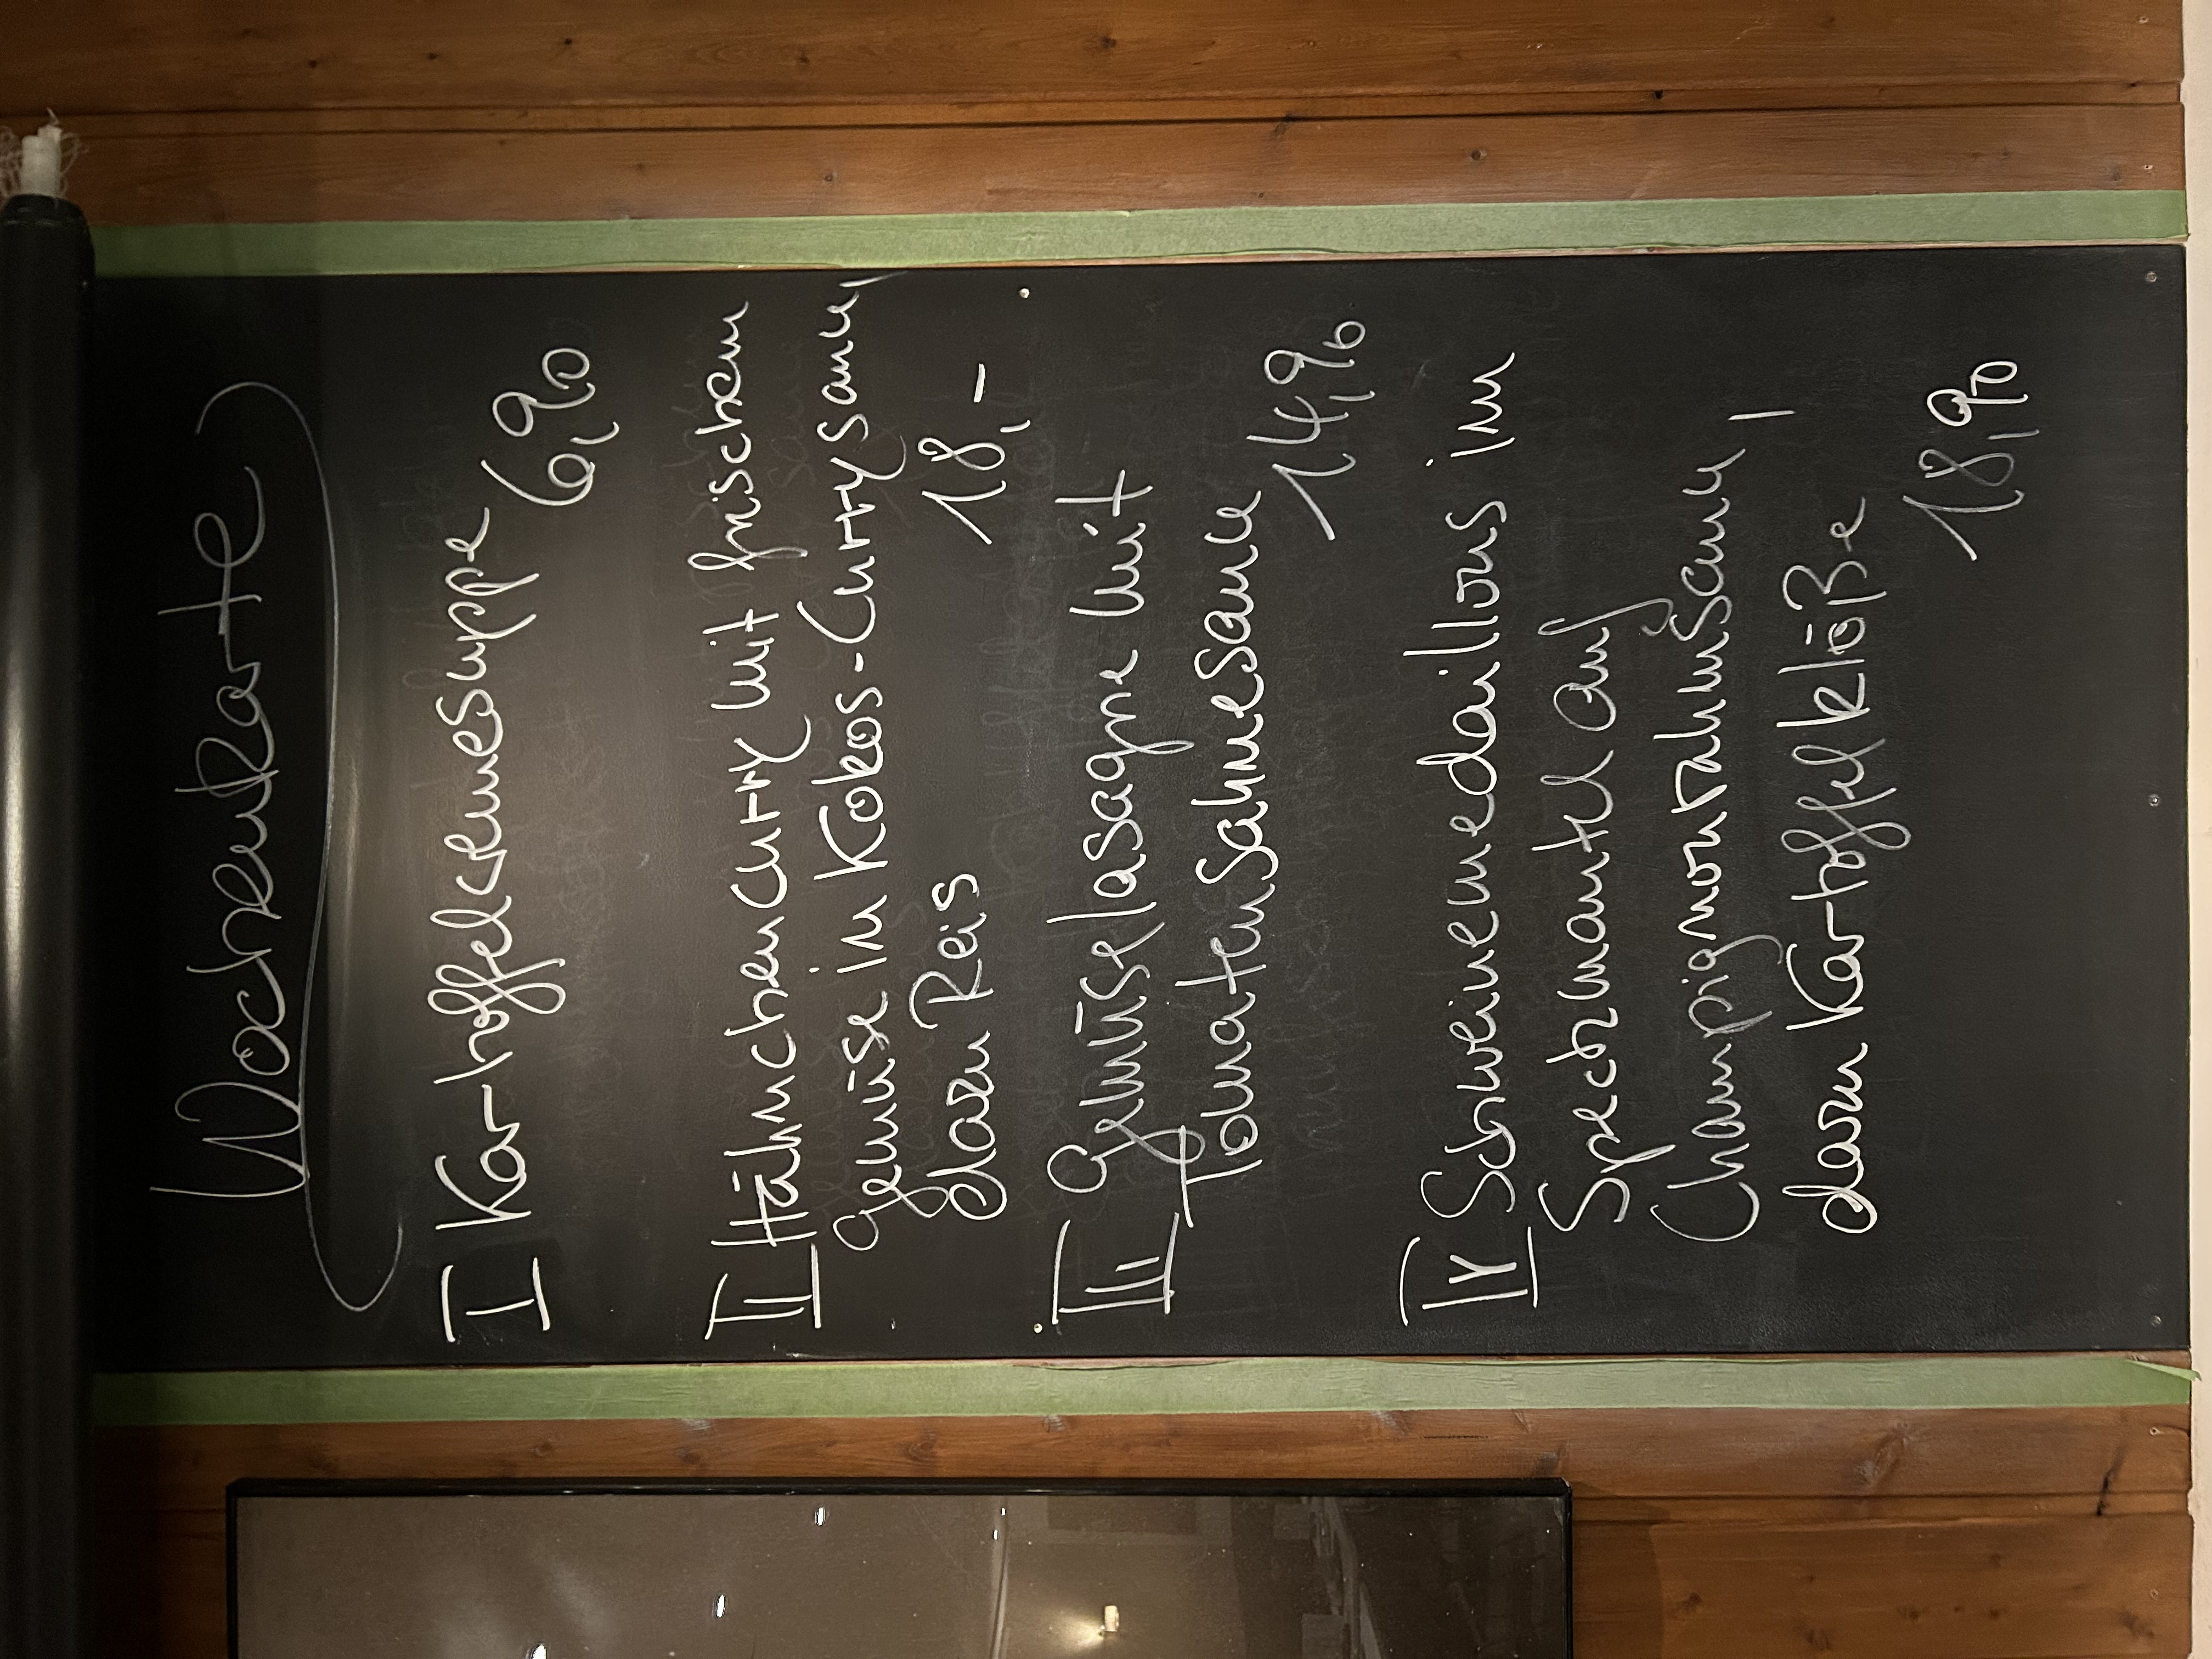 Wochenkarte
I Kartoffelcremesuppe
6,90
II Hähnchencurry mit frischem
Gemüse in Kokos-Currysauce,
dazu Reis 18,-
III Gemüselasagne mit
Tomatensahnesauce
14,90
IV Schweinemedaillons im
Speckmantel auf
Champignonrahmsauce,
dazu Kartoffelklöße
18,90